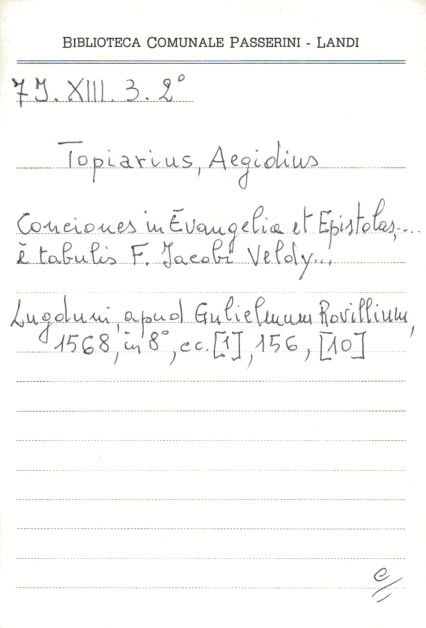 BIBLIOTECA COMUNALE PASSERINI - LANDI
7J. XIII. 3. 2°
Topiarius, Aegidius
Conciones in Evangelia et Epistolas,...
è tabulis F. Jacobi Veldy...
Lugduni, apud Gulielmum Rovillium,
1568, in 8°, cc. [1], 156, [10]
e